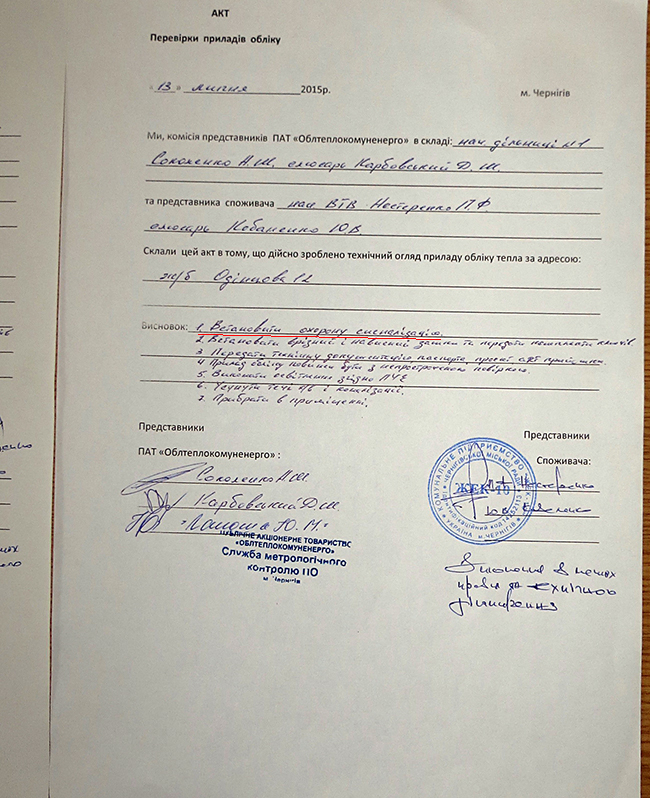 АКТ
Перевірки приладів обліку
« 13 » липня 2015р.
м. Чернігів
Ми, комісія представників ПАТ «Облтеплокомуненерго» в складі: нач. дільниці №1
Соколенко А.М. слюсарь Карбовський Д.М.
та представника споживача нач ВТВ Нестеренко П.Ф
слюсарь Кобаненко Ю.В
Склали цей акт в тому, що дійсно зроблено технічний огляд приладу обліку тепла за адресою:
ж/б Одінцова 12
Висновок: 1. Встановити охорону сигналізацію.
2. Встановити врізний і навісний замки та передати комплект ключів
3. Передати технічну документацію паспорта, проект акт
4. Прилад обліку повинен бути з непростроченою повіркою.
5. Виконати освітлення згідно ПУЕ
6. Усунути течі х/в і каналізації.
7. Прибрати в приміщенні.
Представники
ПАТ «Облтеплокомуненерго» :
Соколенко А.М.
Карбовський Д.М.
Ю.М.
ПУБЛІЧНЕ АКЦІОНЕРНЕ ТОВАРИСТВО
«ОБЛТЕПЛОКОМУНЕНЕРГО»
Служба метрологічного
контролю ПО
м. Чернігів
Представники
Споживача:
КОМУНАЛЬНЕ ПІДПРИЄМСТВО
ЧЕРНІГІВСЬКОЇ МІСЬКОЇ РАДИ
ЖЕК-10
УКРАЇНА м.ЧЕРНІГІВ
Нестеренко